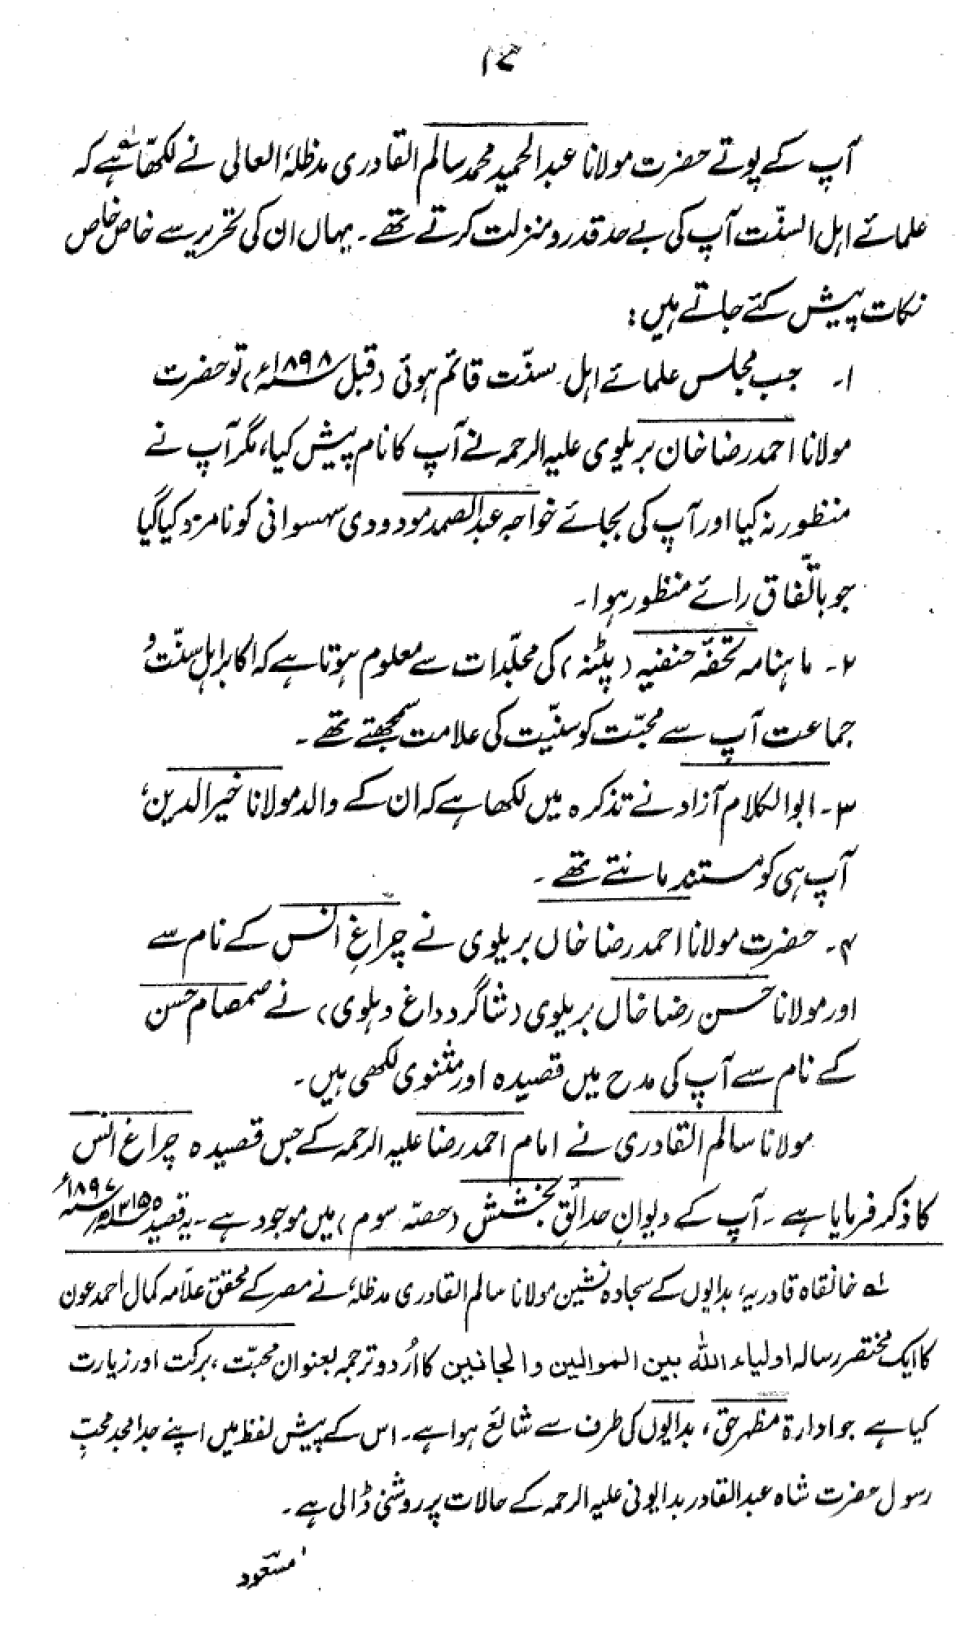 ۱۷
آپ کے پوتے حضرت مولانا عبدالحمید محمد سالم القادری مدظلہٗ العالی نے لکھا ہے کہ
علمائے اہل السنّت آپ کی بے حد قدر و منزلت کرتے تھے۔ یہاں ان کی تحریر سے خاص خاص
نکات پیش کئے جاتے ہیں:
۱۔ جب مجلس علمائے اہل سنّت قائم ہوئی (قبل ۱۸۹۸ء) تو حضرت
مولانا احمد رضا خان بریلوی علیہ الرحمہ نے آپ کا نام پیش کیا، مگر آپ نے
منظور نہ کیا اور آپ کی بجائے خواجہ عبدالصمد مودودی سہسوانی کو نامزد کیا گیا
جو باتّفاق رائے منظور ہوا۔
۲۔ ماہنامہ تحفّہ حنفیہ (پٹنہ) کی مجلّدات سے معلوم ہوتا ہے کہ اکابر اہل سنّت و
جماعت آپ سے محبّت کو سنیّت کی علامت سمجھتے تھے۔
۳۔ ابوالکلام آزاد نے تذکرہ میں لکھا ہے کہ ان کے والد مولانا خیرالدین،
آپ ہی کو مستند مانتے تھے۔
۴۔ حضرتِ مولانا احمد رضا خاں بریلوی نے چراغِ انس کے نام سے
اور مولانا حسن رضا خاں بریلوی (شاگرد داغ دہلوی) نے صمصام حسن
کے نام سے آپ کی مدح میں قصیدہ اور مثنوی لکھی ہیں۔
مولانا سالم القادری نے امام احمد رضا علیہ الرحمہ کے جس قصیدہ چراغ انس
کا ذکر فرمایا ہے۔ آپ کے دیوانِ حدائقِ بخشش (حصّہ سوم) میں موجود ہے۔ یہ قصیدہ ۱۳۱۵ھ ۱۸۹۷ء
لہ خانقاہ قادریہ، بدایوں کے سجادہ نشین مولانا سالم القادری مدظلہٗ نے مصر کے محقق علّامہ کمال احمد عون
کا ایک مختصر رسالہ اولیاء اللہ بین الموالین والجانبین کا اُردو ترجمہ بعنوان محبّت، برکت اور زیارت
کیا ہے جو ادارۃ مظہر حق، بدایوں کی طرف سے شائع ہوا ہے۔ اس کے پیش لفظ میں اپنے جد امجد محبِّ
رسول حضرت شاہ عبدالقادر بدایونی علیہ الرحمہ کے حالات پر روشنی ڈالی ہے۔
مسعود